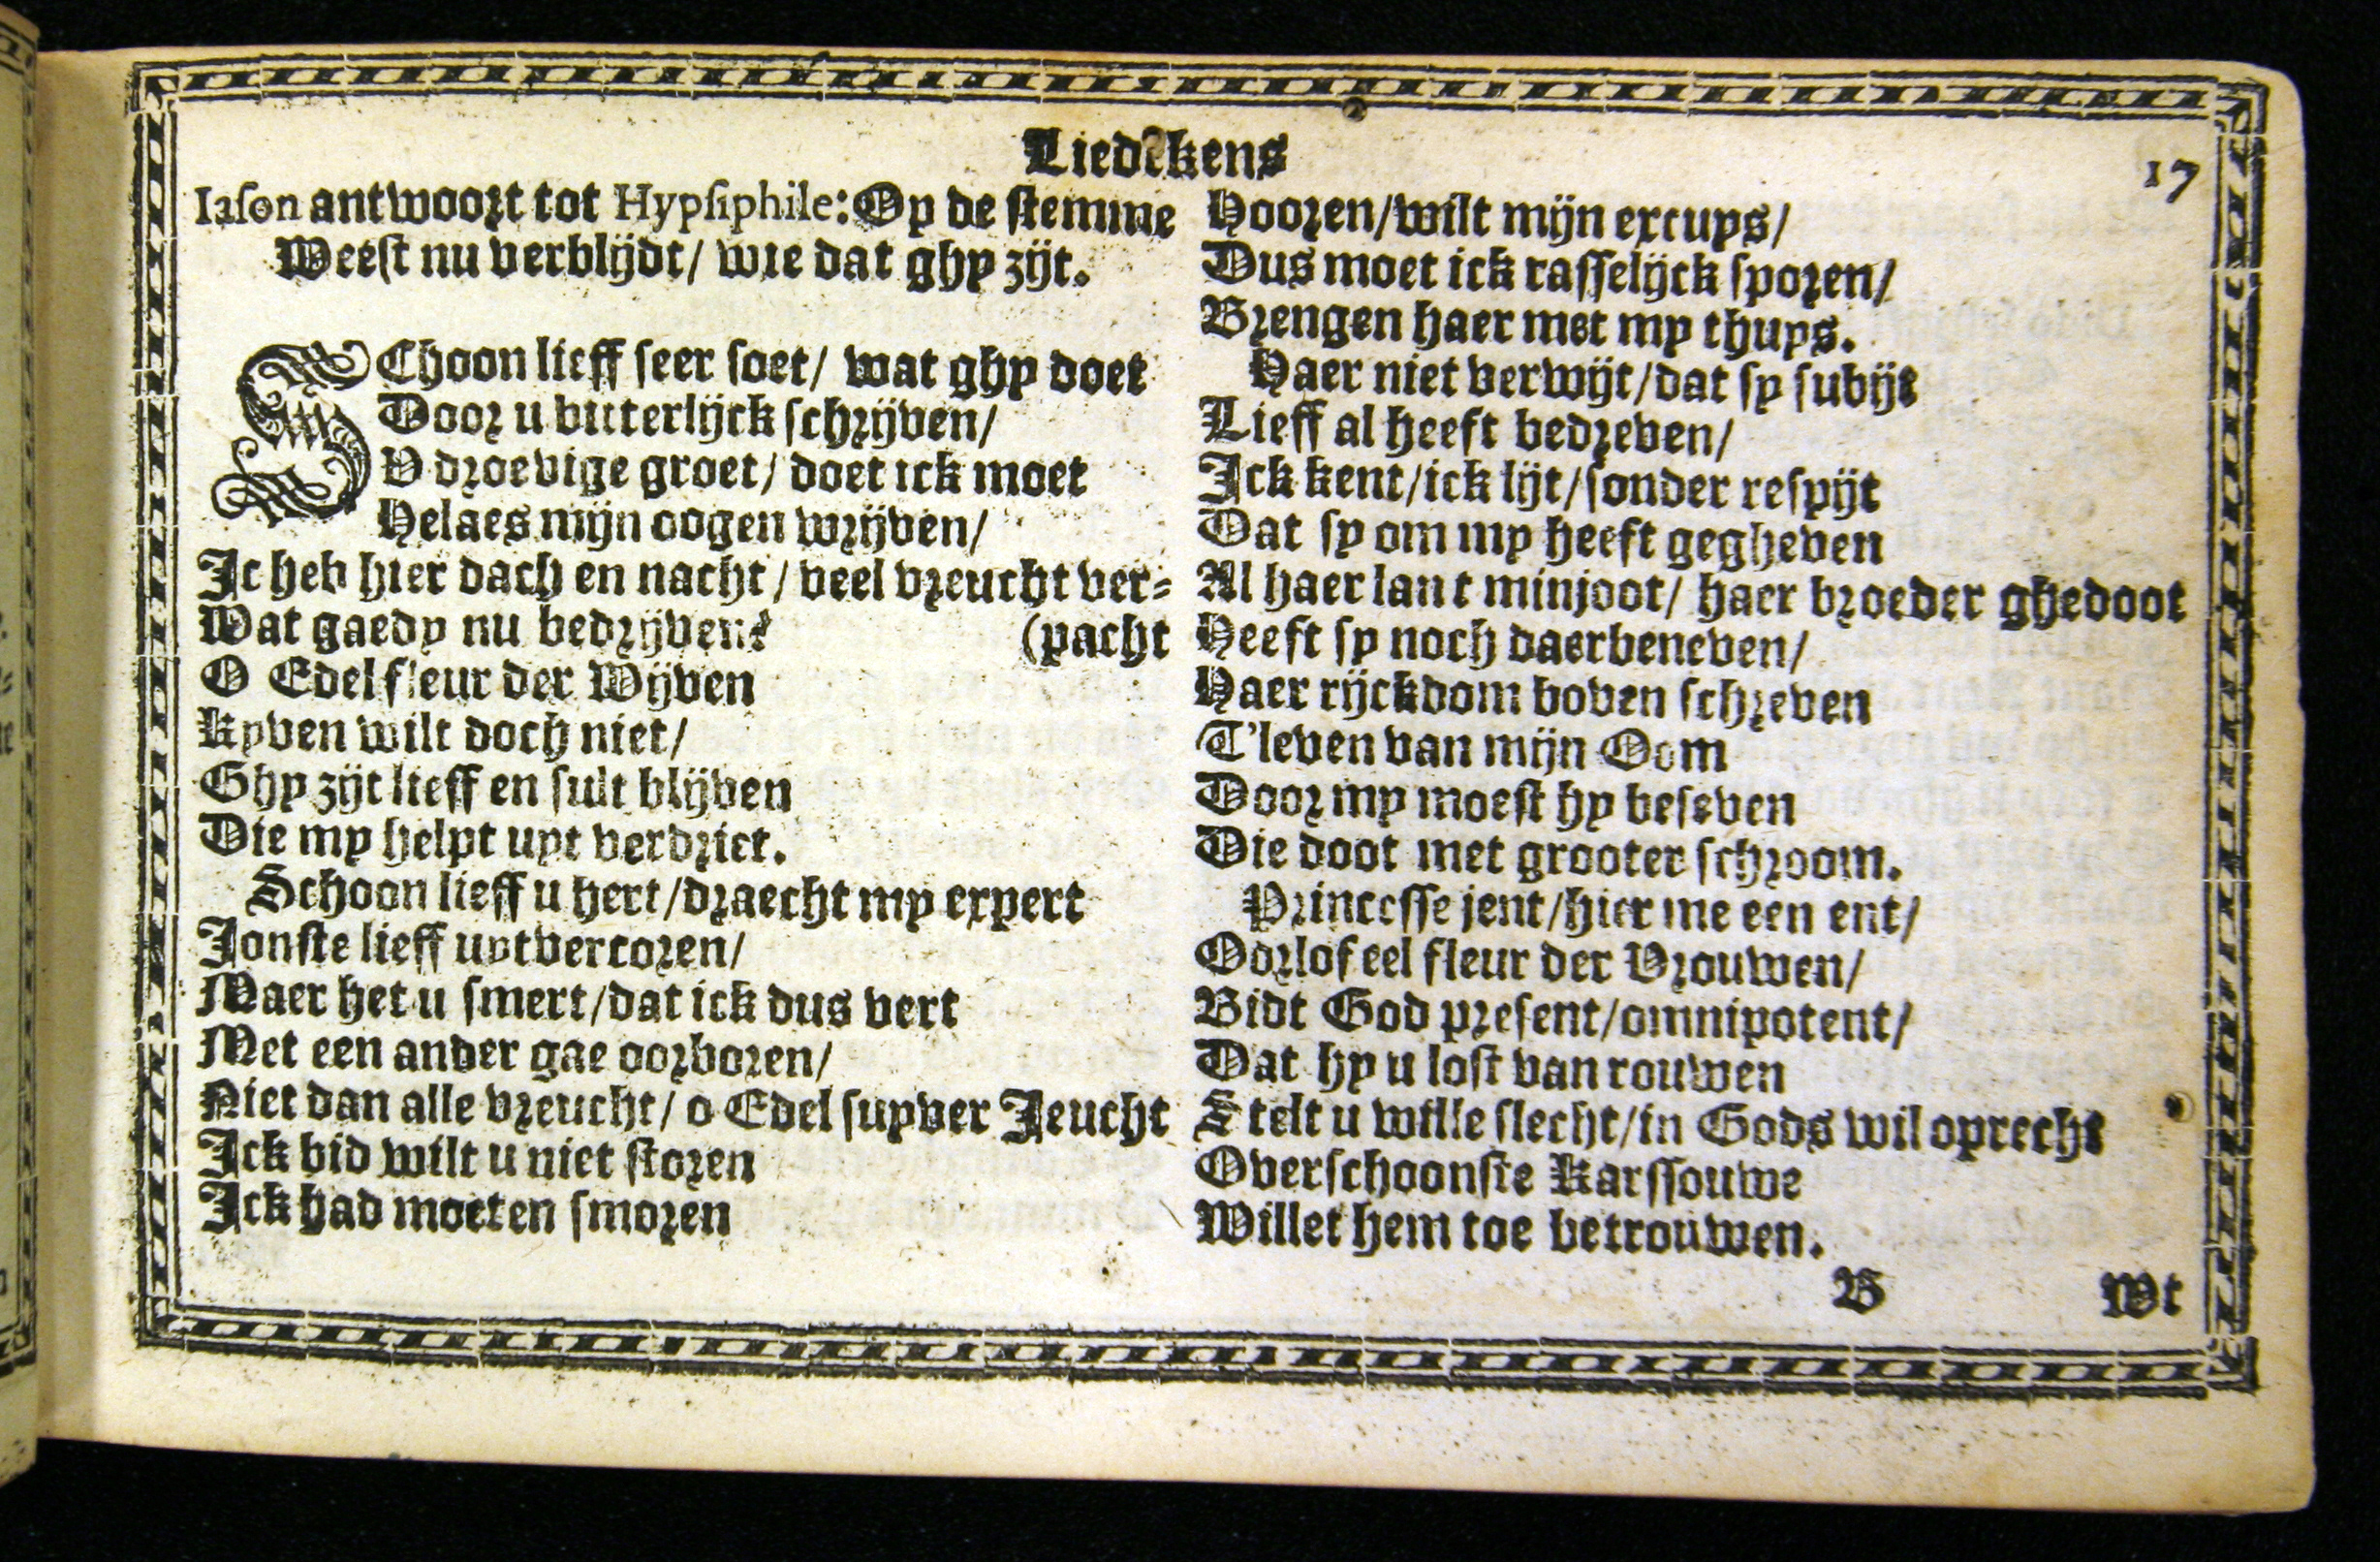 Liedekens
17
Iason antwoort tot Hypsiphile: Op de stemme
Weest nu verblijdt/ wie dat ghy zijt.
SChoon lieff seer soet/ wat ghy doet
Door u bitterlijck schrijven/
V droevige groet/ doet ick moet
Helaes mijn oogen wrijven/
Ic heb hier dach en nacht/ veel vreucht ver-
Wat gaedy nu bedrijven? (pacht
O Edel fleur der Wijven
Kyven wilt doch niet/
Ghy zijt lieff en sult blijven
Die my helpt uyt verdriet.
Schoon lieff u hert/draecht my expert
Jonste lieff uytvercoren/
Maer het u smert/dat ick dus vert
Met een ander gae oorboren/
Niet dan alle vreucht/ o Edel suyver Jeucht
Ick bid wilt u niet storen
Ick had moeten smoren
Hooren/wilt mijn excuys/
Dus moet ick rasselijck sporen/
Brengen haer met my thuys.
Haer niet verwijt/dat sy subijt
Lieff al heeft bedreven/
Ick kent/ick lijt/sonder respijt
Dat sy om my heeft gegheven
Al haer lant minjoot/ haer broeder ghedoot
Heeft sy noch daerbeneven/
Haer rijckdom boven schreven
T'leven van mijn Oom
Door my moest hy beseven
Die doot met grooter schroom.
Princesse jent/hier me een ent/
Oorlof eel fleur der Vrouwen/
Bidt God present/omnipotent/
Dat hy u lost van rouwen
Stelt u wille slecht/in Gods wil oprecht
Overschoonste Karssouwe
Willet hem toe betrouwen.
B Wt